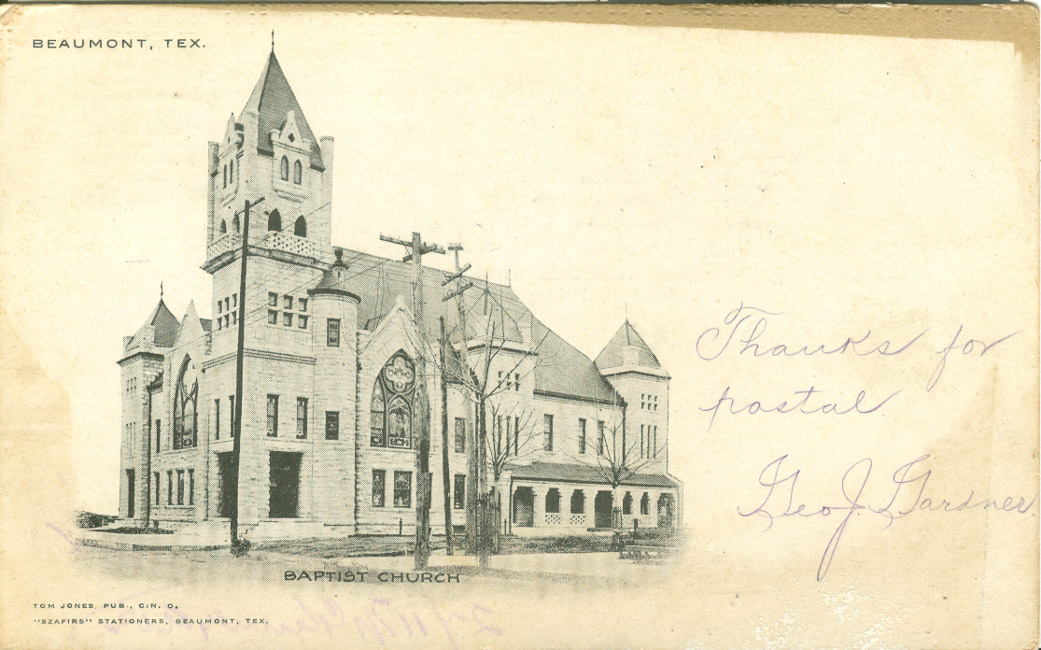 BEAUMONT, TEX.
Thanks for
postal.
Geo J. Gardner.
BAPTIST CHURCH
TOM JONES, PUB., CIN. O.
"SZAFIRS" STATIONERS, BEAUMONT, TEX.